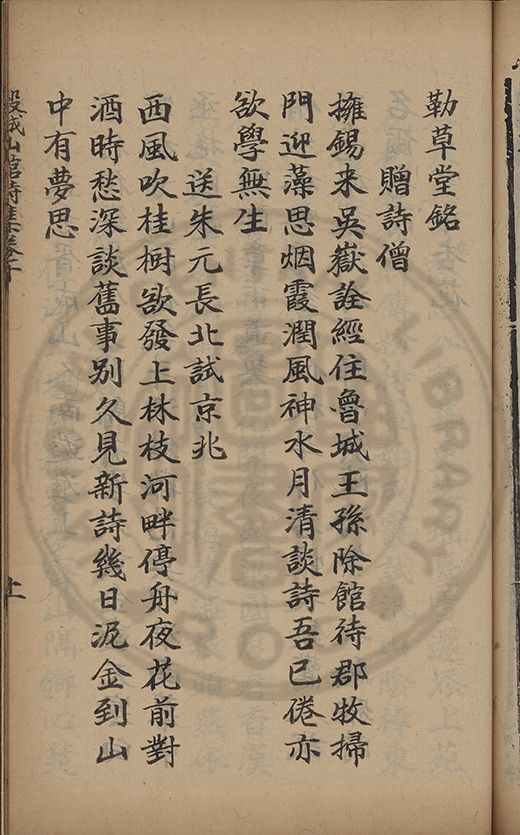 勒草堂銘
贈詩僧
擁錫来吳嶽詮經住魯城王孫除館待郡牧掃
門迎藻思烟霞潤風神水月清談詩吾已倦亦
欲學無生
送朱元長北試京兆
西風吹桂樹欲發上林枝河畔停舟夜花前對
酒時愁深談舊事別久見新詩幾日泥金到山
中有夢思